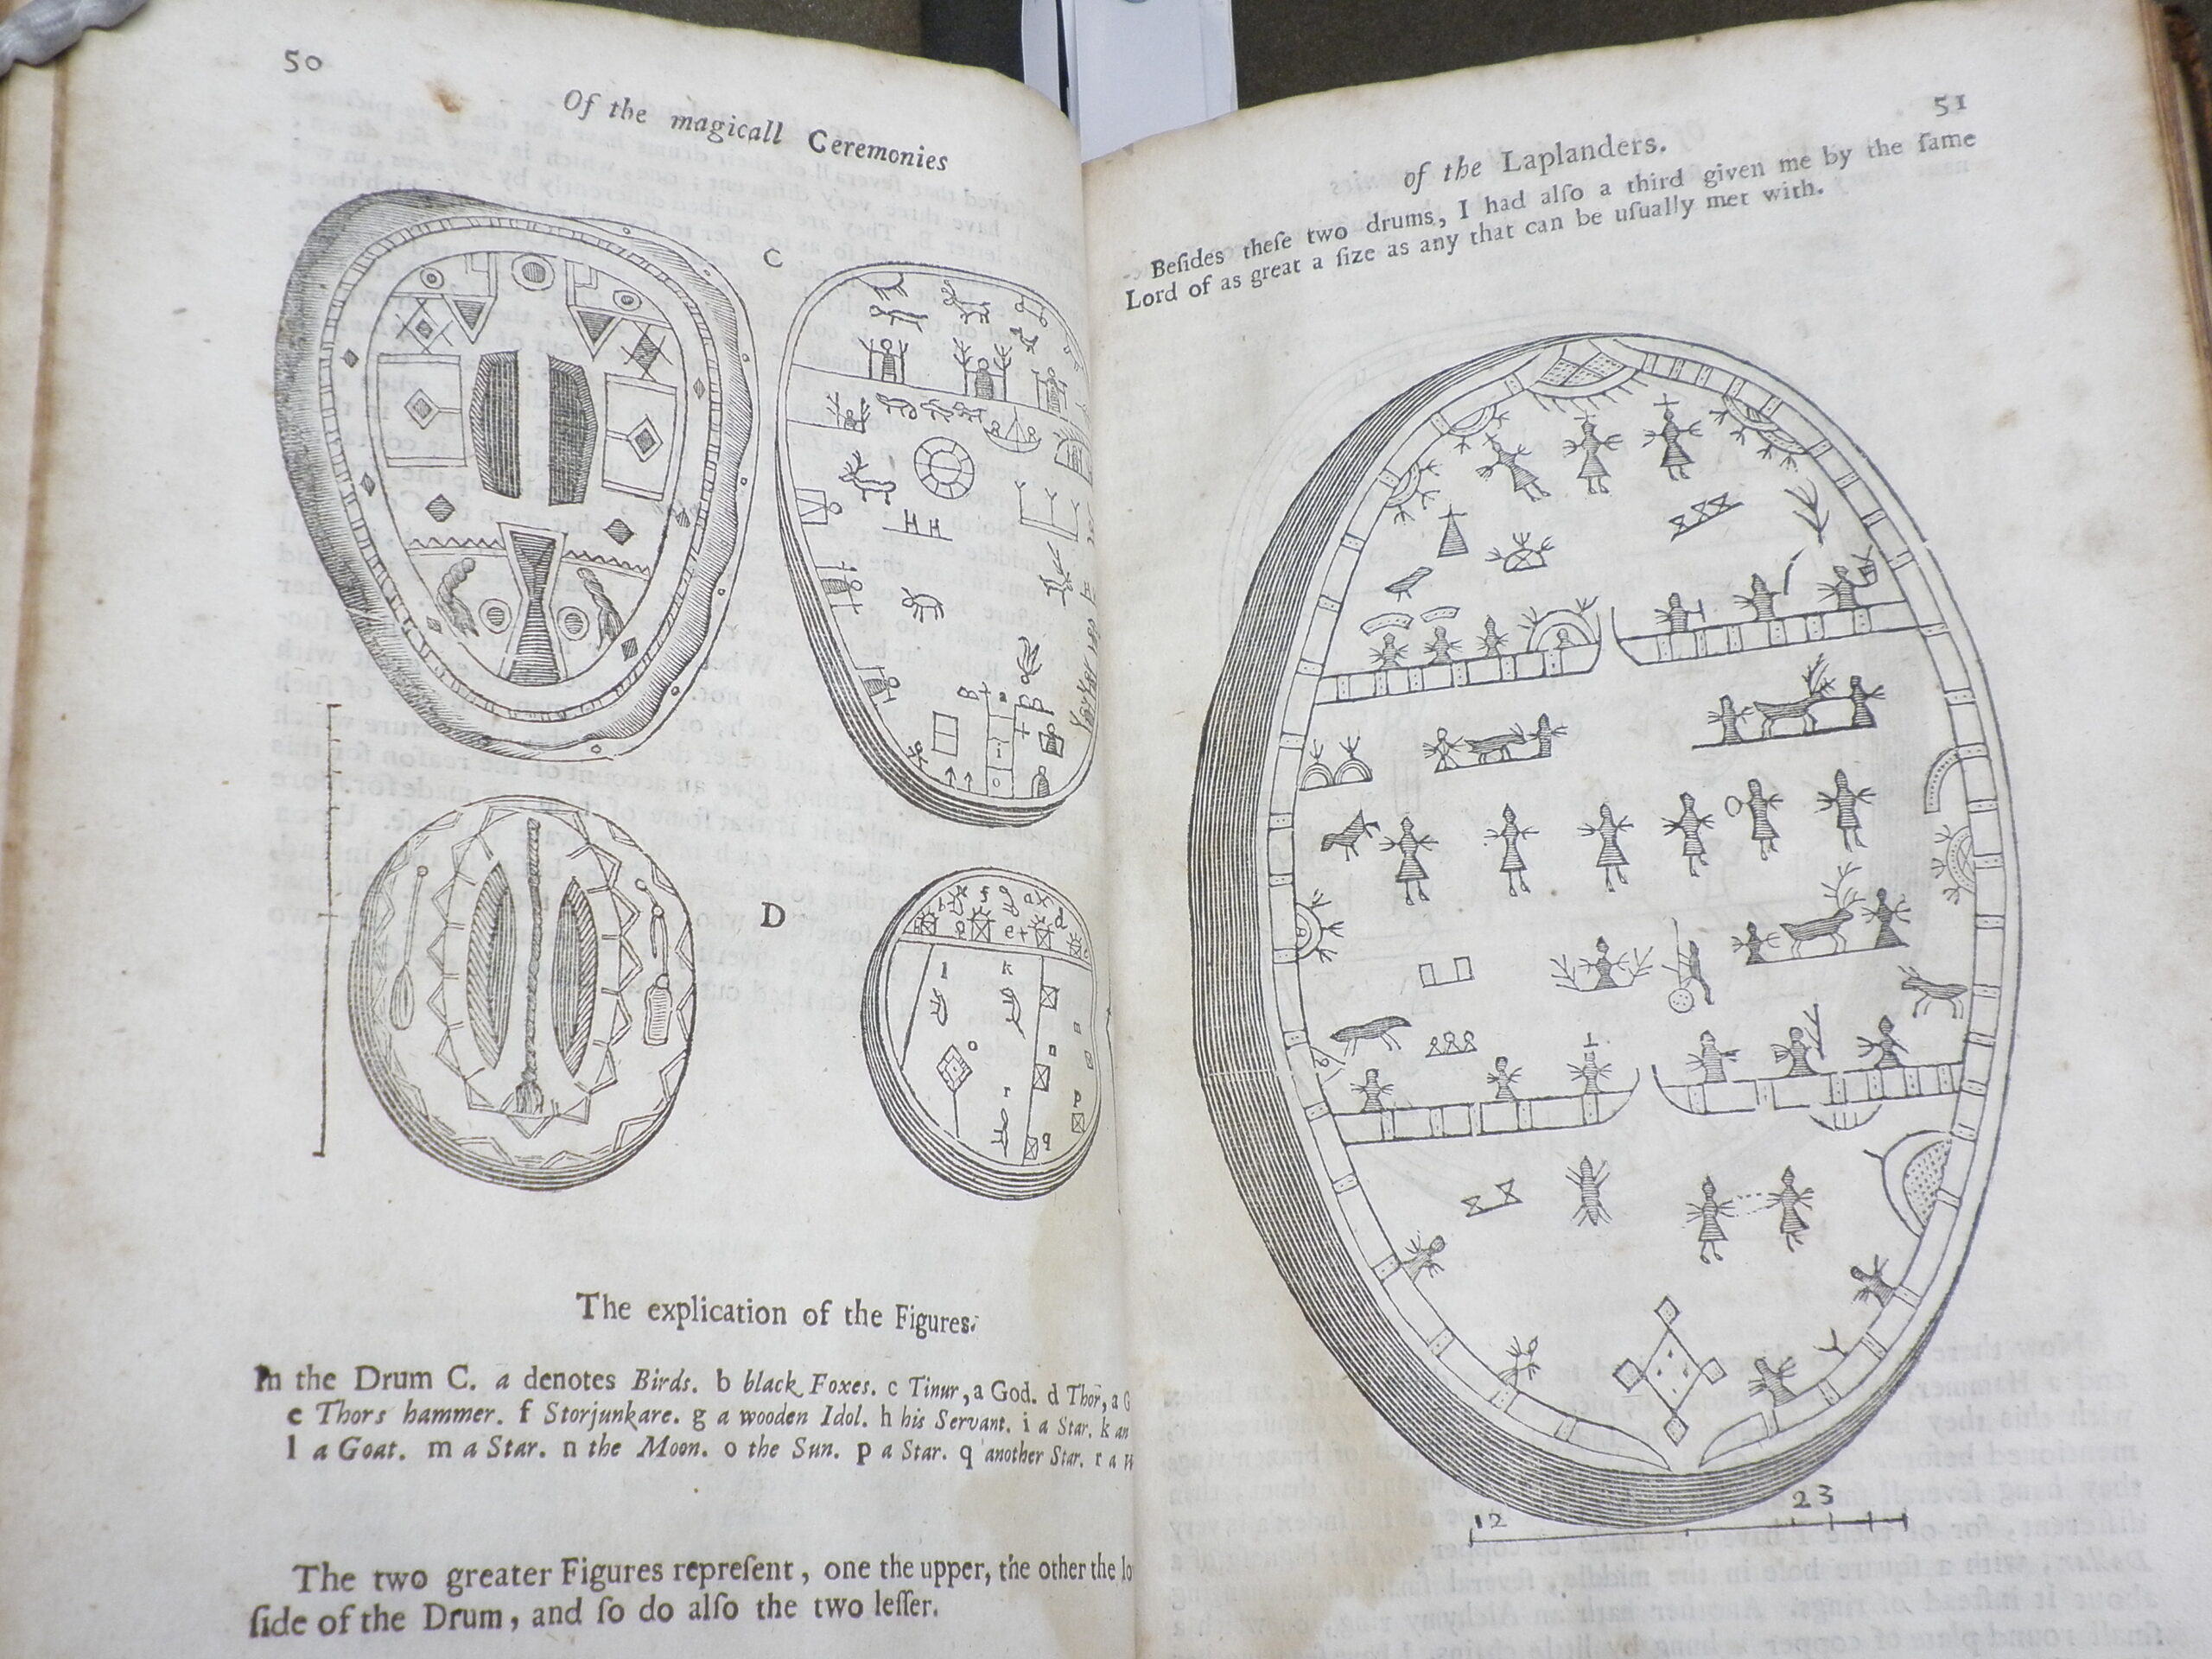 50
Of the magicall Ceremonies
C
D
The explication of the Figures.
In the Drum C. a denotes Birds. b black Foxes. c Tinur, a God. d Thor, a G
e Thors hammer. f Storjunkare. g a wooden Idol. h his Servant. i a Star. k an
l a Goat. m a Star. n the Moon. o the Sun. p a Star. q another Star. r a
The two greater Figures repreſent, one the upper, the other the lo
ſide of the Drum, and ſo do alſo the two leſſer.
51
of the Laplanders.
Beſides theſe two drums, I had alſo a third given me by the ſame
Lord of as great a ſize as any that can be uſually met with.
12
23